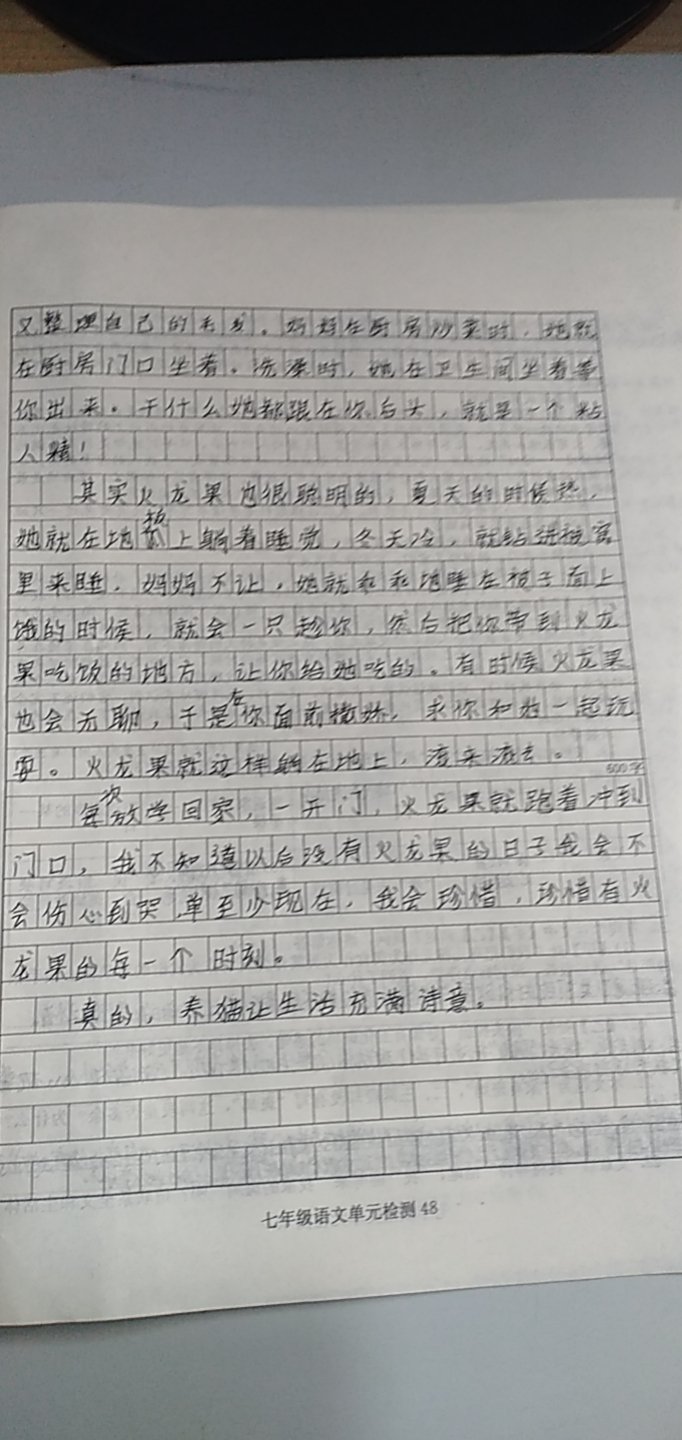 又整理自己的毛发。妈妈在厨房炒菜时，她就
在厨房门口坐着。洗澡时，她在卫生间坐着等
你出来。干什么她都跟在你后头，就是一个粘
人精！
其实火龙果也很聪明的，夏天的时候热，
她就在地板上躺着睡觉，冬天冷，就钻进被窝
里来睡，妈妈不让，她就乖乖地睡在被子面上
饿的时候，就会一只趁你，然后把你带到火龙
果吃饭的地方，让你给她吃的。有时候火龙果
也会无聊，于是在你面前撒娇，求你和她一起玩
耍。火龙果就这样躺在地上，滚来滚去。
600字
每次放学回家，一开门，火龙果就跑着冲到
门口，我不知道以后没有火龙果的日子我会不
会伤心到哭，单至少现在，我会珍惜，珍惜有火
龙果的每一个时刻。
真的，养猫让生活充满诗意。
七年级语文单元检测48